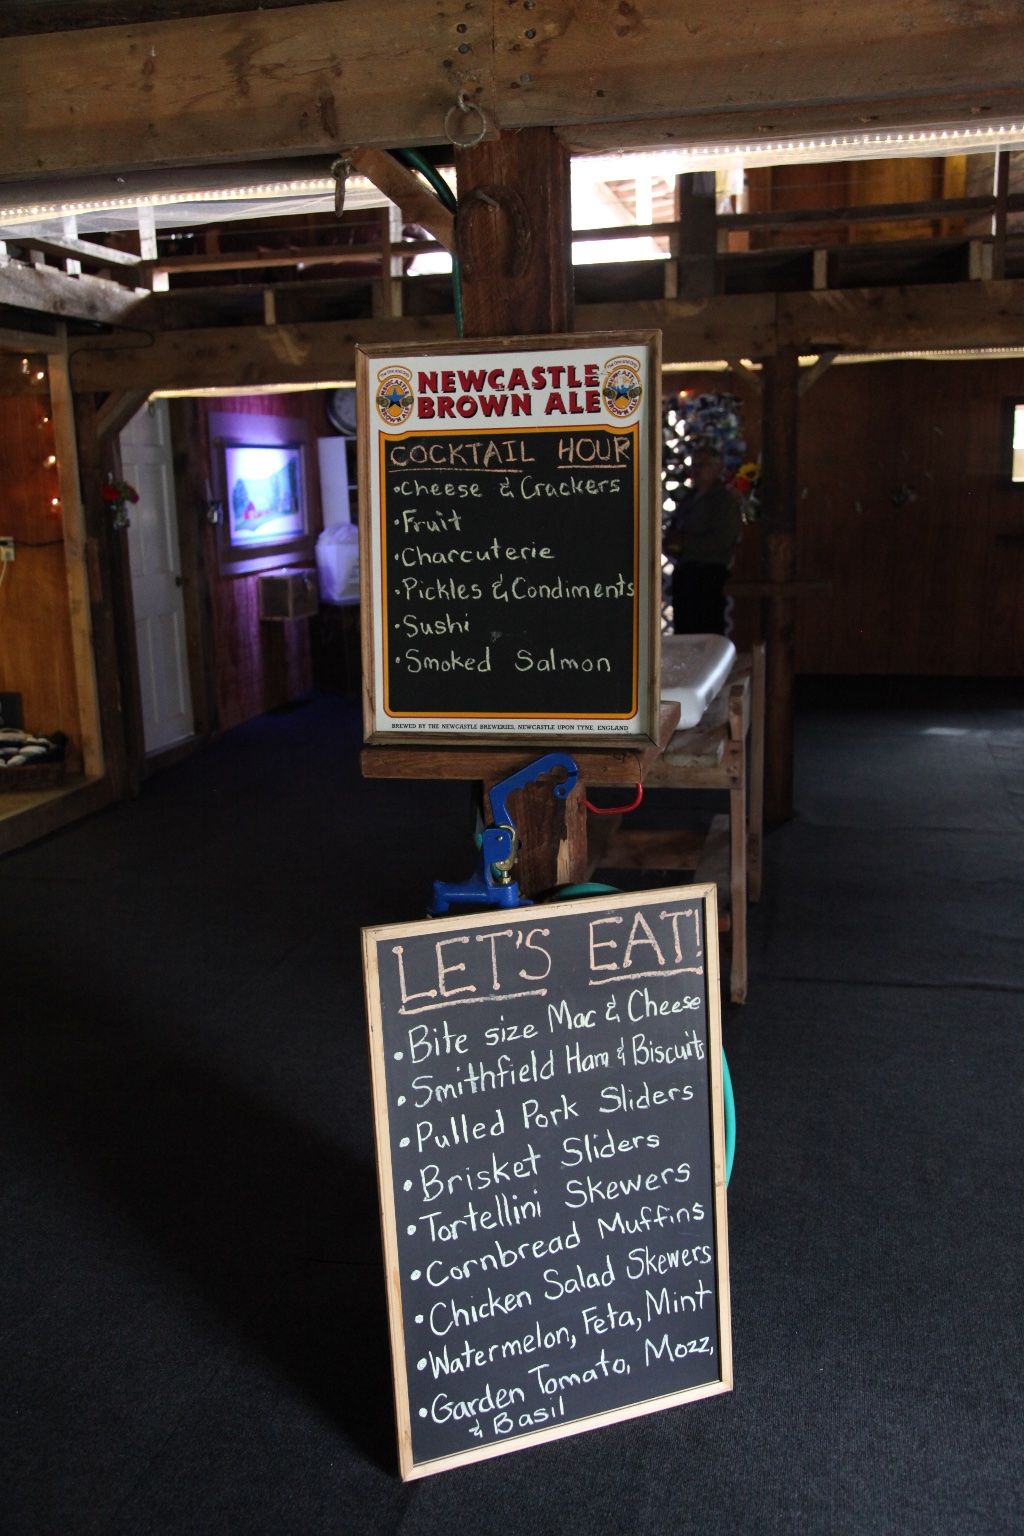 NEWCASTLE
BROWN ALE
COCKTAIL HOUR
•Cheese & Crackers
•Fruit
•Charcuterie
•Pickles & Condiments
•Sushi
•Smoked Salmon
BREWED BY THE NEWCASTLE BREWERIES, NEWCASTLE UPON TYNE, ENGLAND
LET'S EAT!
•Bite size Mac & Cheese
•Smithfield Ham & Biscuits
•Pulled Pork Sliders
•Brisket Sliders
•Tortellini Skewers
•Cornbread Muffins
•Chicken Salad Skewers
•Watermelon, Feta, Mint
•Garden Tomato, Mozz,
& Basil